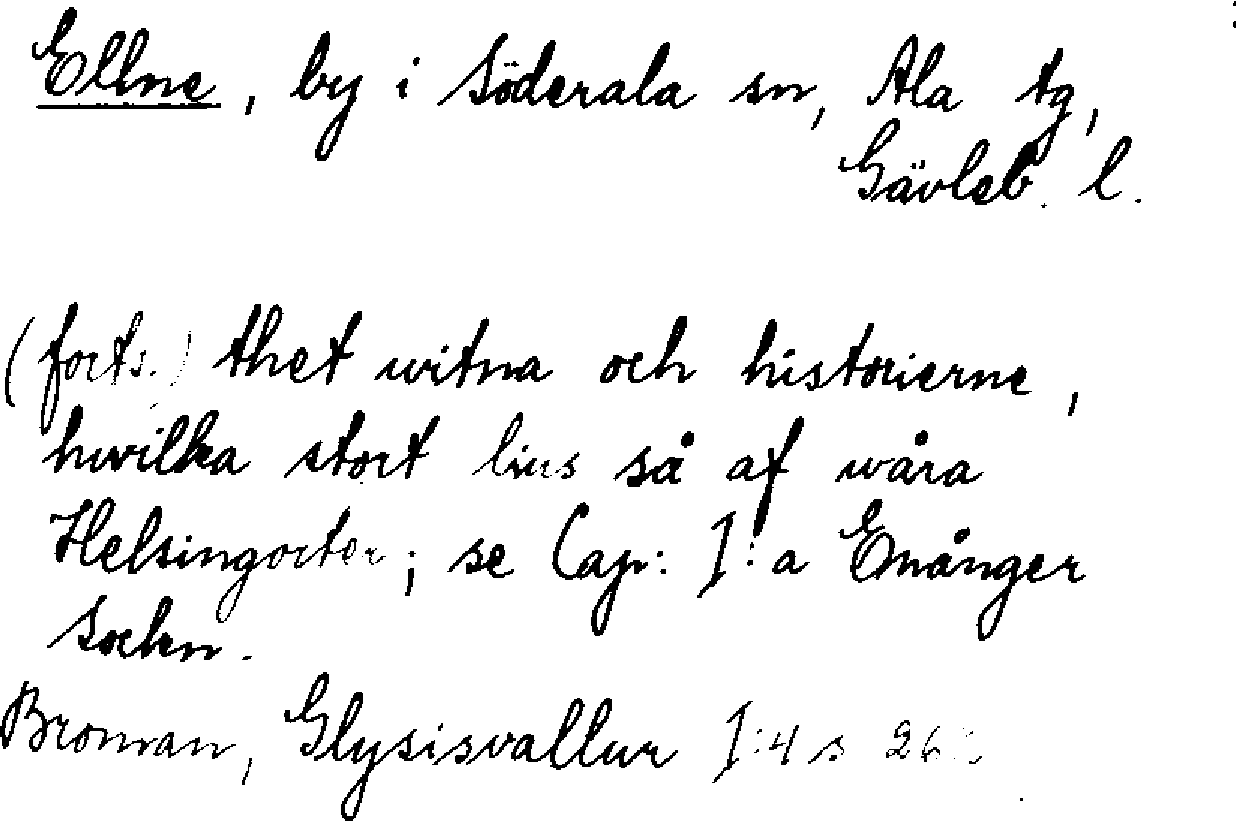 Ellne, by i Söderala sn, Ala tg,
Gävleb. l.
(forts.) thet witna och historierne,
hwilka stort lius så af wåra
Helsingorter; se Cap: I:a Enånger
Sockn.
Broman, Glysisvallur I:4 s